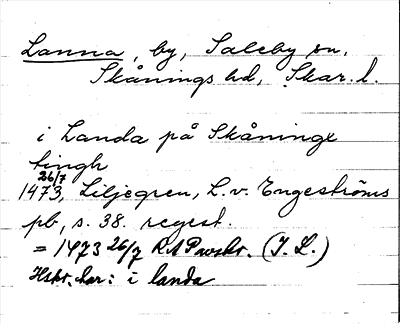 Lanna, by, Saleby sn,
Skånings hd, Skar. l.
i Landa på Skåninge
tingh
26/7
1473, Liljegren, L. v. Engeströms
pb, s. 38. regest.
= 1473 26/7 RAPavskr. (J. L.)
Hskr. har: i landa